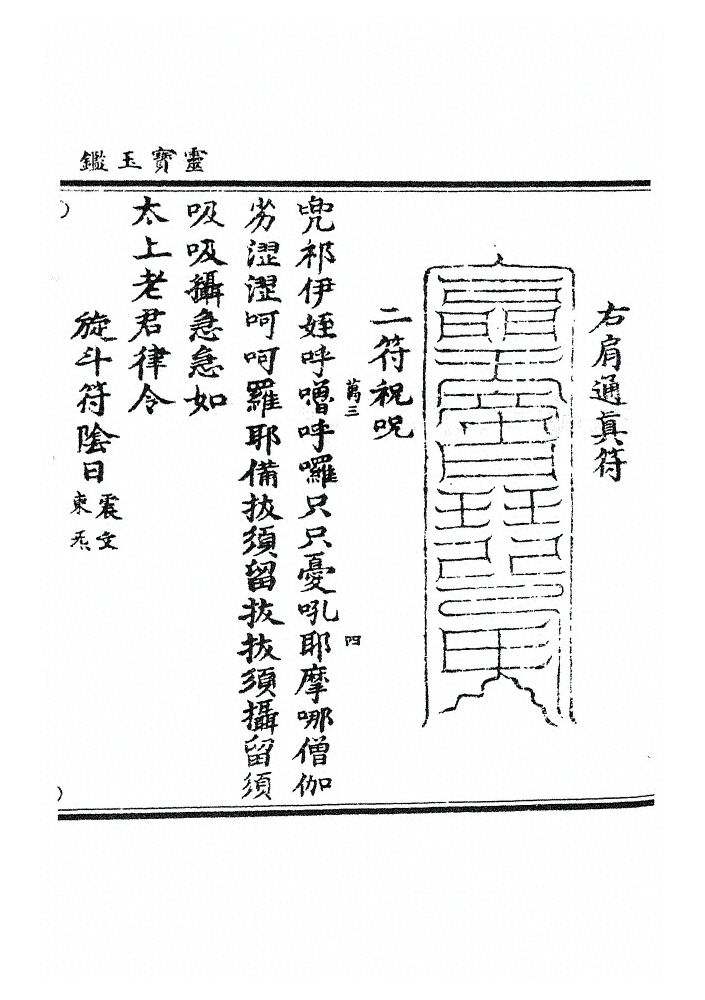 靈寶玉鑑
右肩通真符
二符祝呪
萬三
四
兜祁伊姪呼噌呼囉只只憂吼耶摩哪僧伽
劣澀澀呵呵羅耶備拔須留拔拔須攝留須
吸吸攝急急如
太上老君律令
旋斗符陰日
震文
東炁